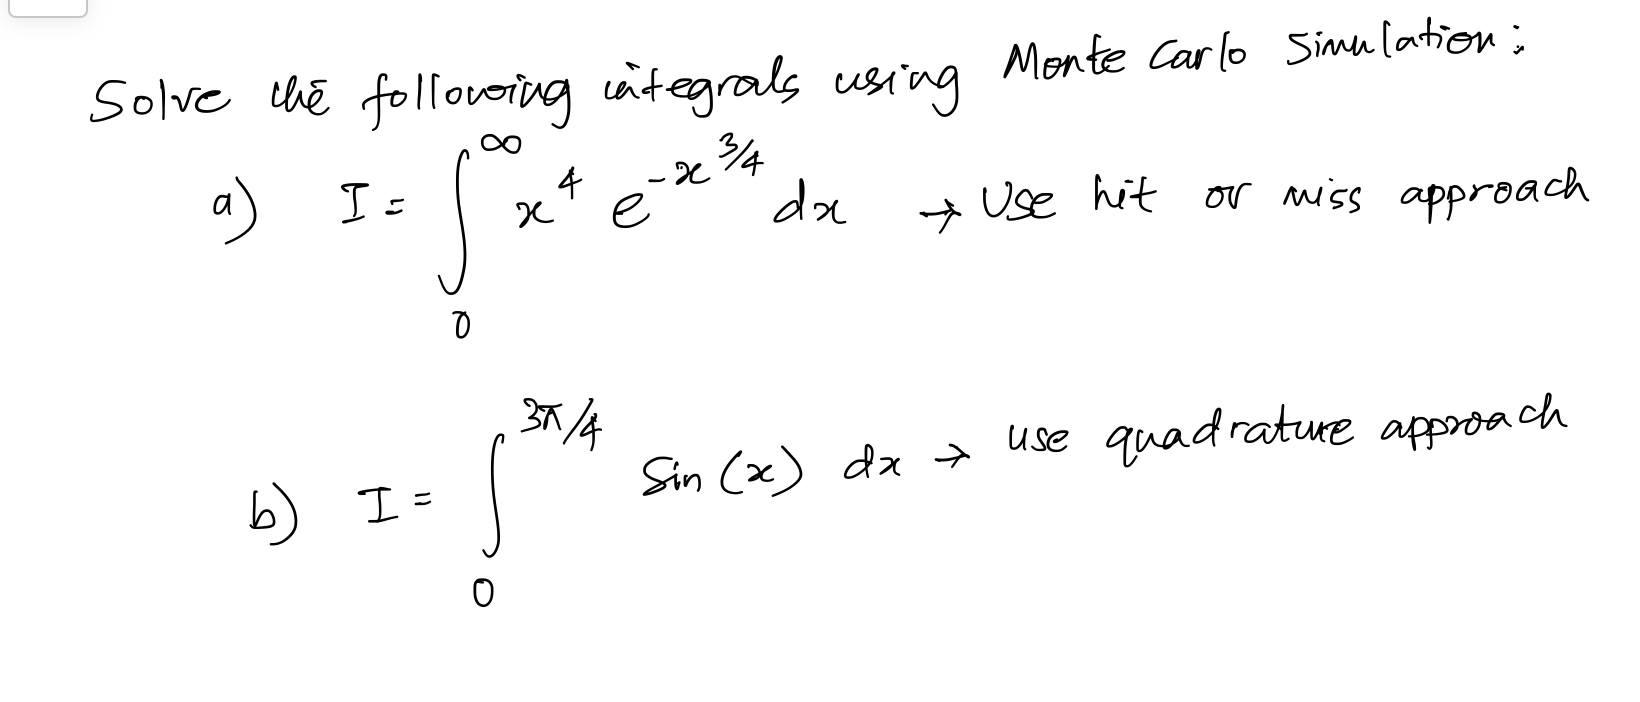 Solve the following integrals using Monte Carlo Simulation:
a) I = ∫₀^∞ x⁴ e^(-x^(3/4)) dx → Use hit or miss approach
b) I = ∫₀^(3π/4) Sin (x) dx → use quadrature approach